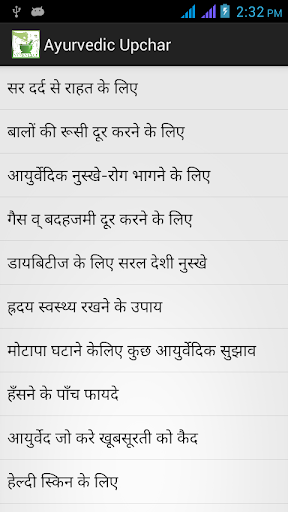 2:32 PM
Ayurvedic Upchar
सर दर्द से राहत के लिए
बालों की रूसी दूर करने के लिए
आयुर्वेदिक नुस्खे-रोग भागने के लिए
गैस व् बदहजमी दूर करने के लिए
डायबिटीज के लिए सरल देशी नुस्खे
ह्रदय स्वस्थ्य रखने के उपाय
मोटापा घटाने केलिए कुछ आयुर्वेदिक सुझाव
हँसने के पाँच फायदे
आयुर्वेद जो करे खूबसूरती को कैद
हेल्दी स्किन के लिए